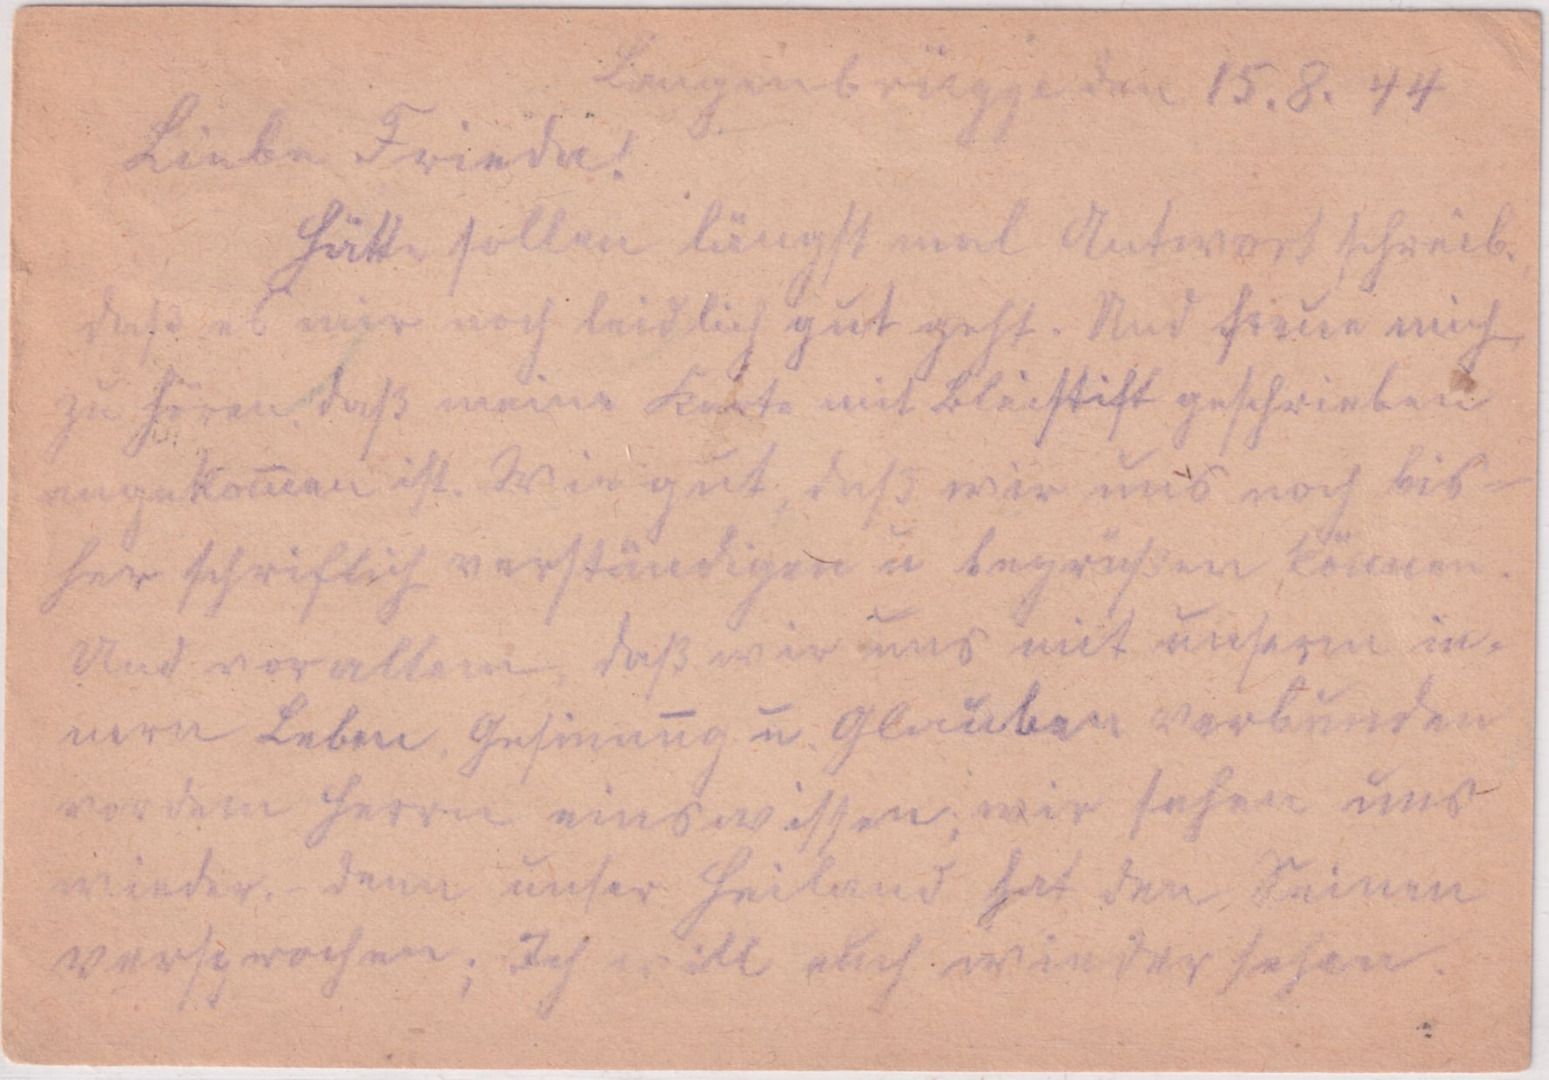 Langenbrügge den 15.8.44
Liebe Frieda!
Hätte sollen längst mal Antwort schreib.
daß es mir noch leidlich gut geht. Und freue mich
zu hören, daß meine Karte mit Bleistift geschrieben
angekom̅en ist. Wie gut, daß wir uns noch bis-
her schriftlich verständigen u begrüßen können.
Und vor allem, daß wir uns mit unserm in-
nern Leben, Gesinnung u. Glauben verbunden
vor dem Herrn eins wissen; wir sehen uns
wieder. denn unser Heiland hat den Seinen
versprochen; Ich will euch wiedersehen.